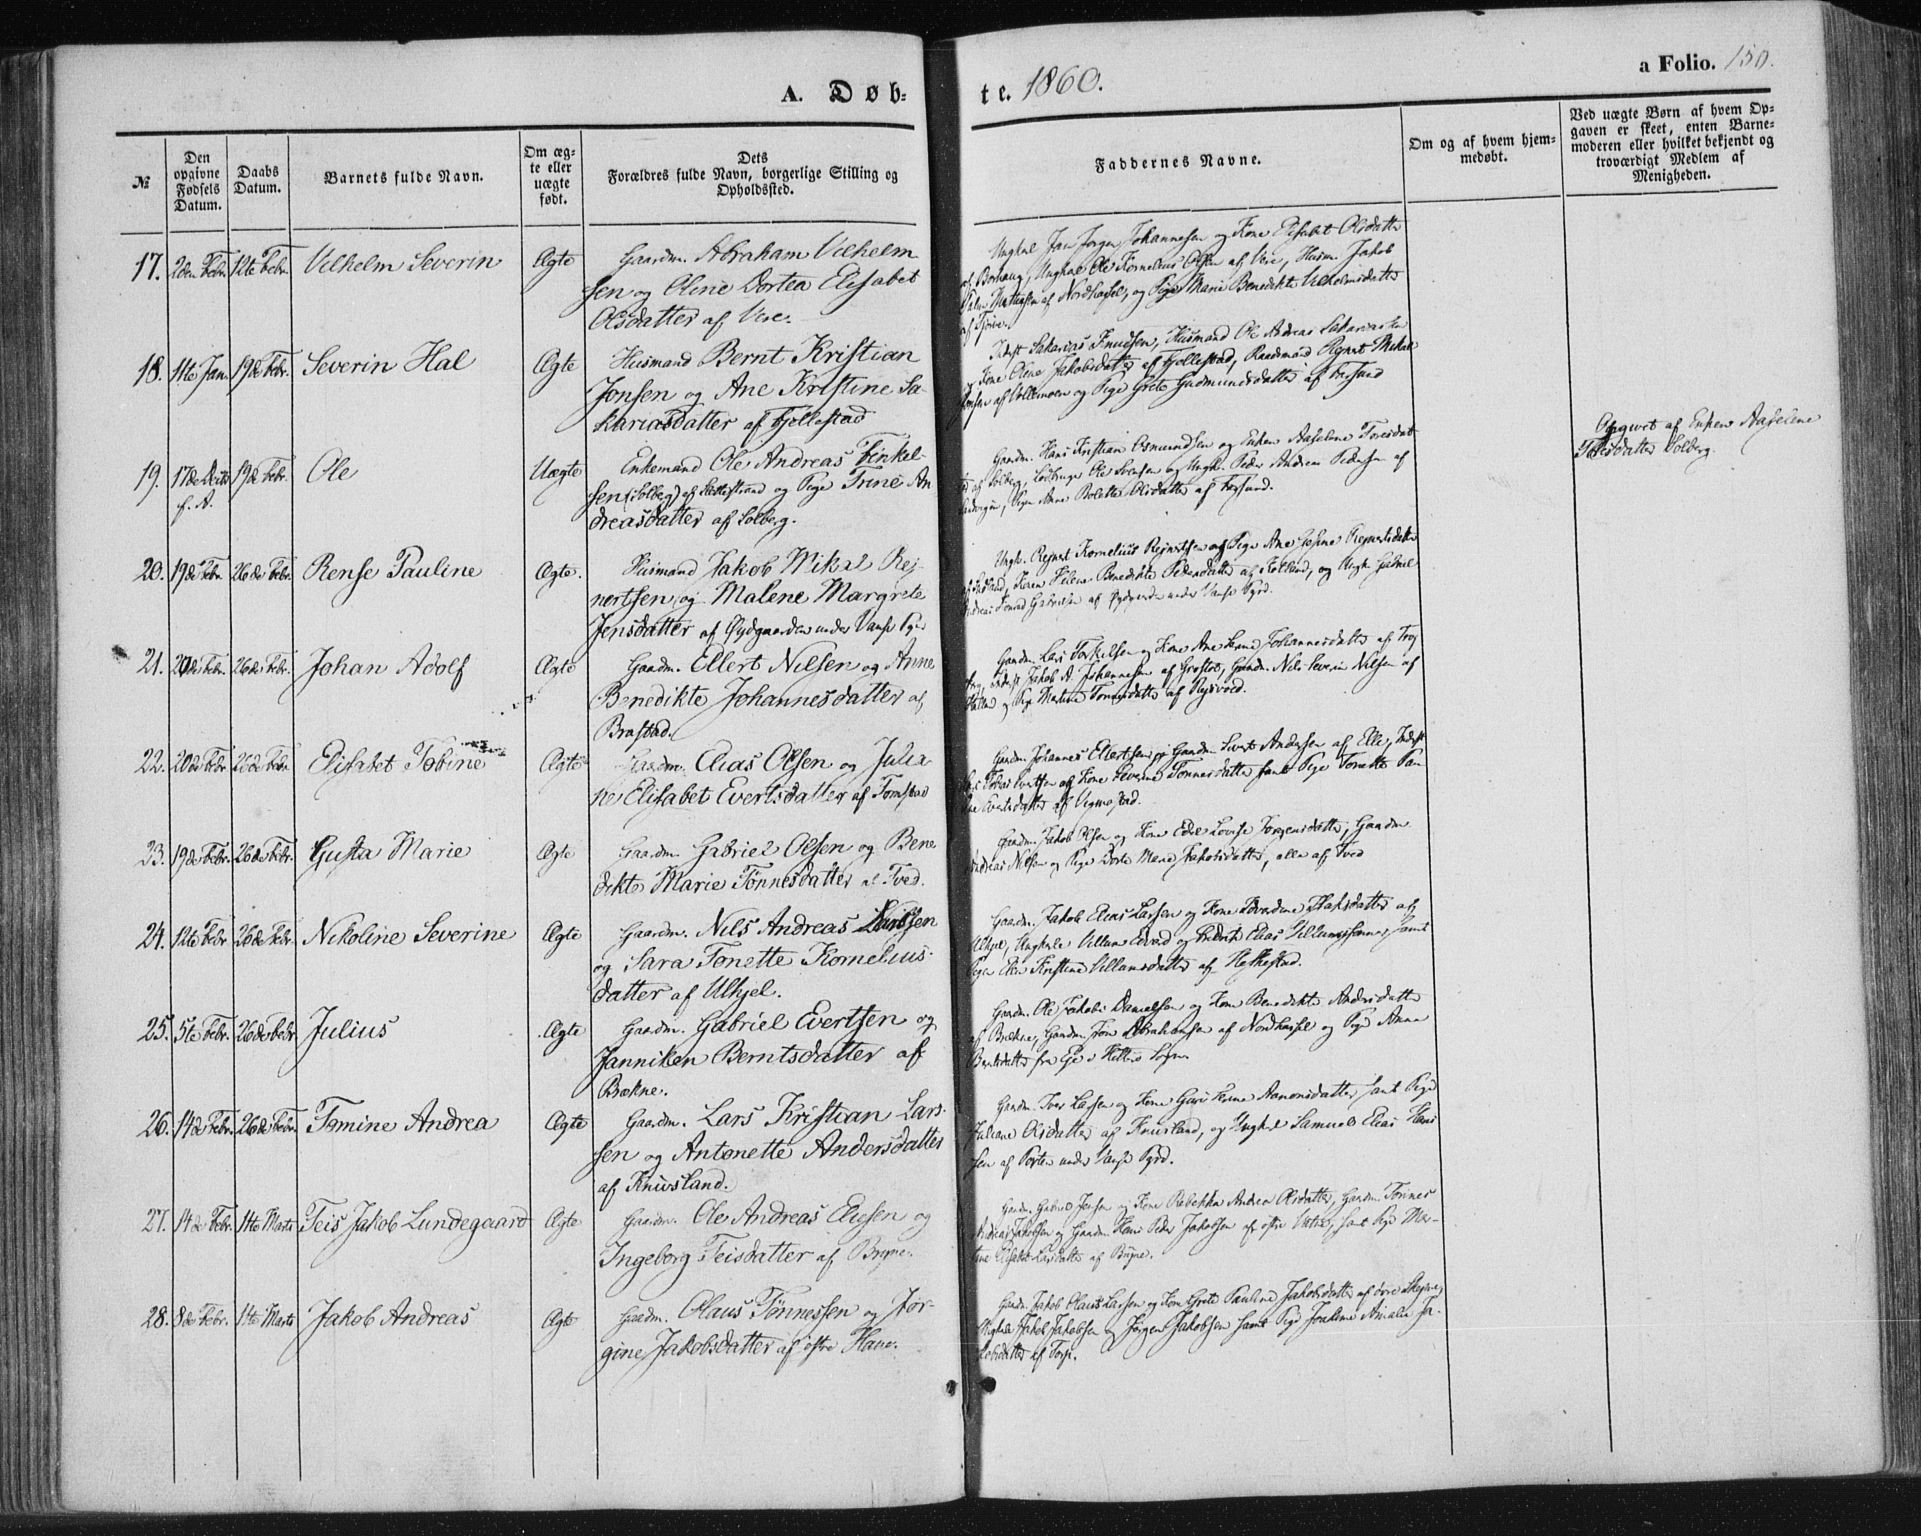 A. Døb-
te. 1860.
a Folio. 150.
№
Den opgivne Fødsels Datum.
Daabs Datum.
Barnets fulde Navn.
Om ægte eller uægte født.
Dets Forældres fulde Navn, borgerlige Stilling og Opholdssted.
Faddernes Navne.
Om og af hvem hjemmedøbt.
Ved uægte Børn af hvem Opgaven er skeet, enten Barnemoderen eller hvilket bekjendt og troværdigt Medlem af Menigheden.
17. 2den Febr. 12te Febr. Vilhelm Severin Ægte Gaardm. Abraham Vilhelm
sen og Oline Dortea Elisabet
Olsdatter af Vere.
Ungkal Jan Jørgen Johannesen og Kone Elisabet Olsdatter
af Borhaug, Ungkal Ole Kornelius Olsen af Vere, Husm. Jakob
af Nordhassel, og Pige Marie Benedikte Vilhelmsdatter
18. 11te Jan. 19de Febr. Severin Hal Ægte Husmand Bernt Kristian
Jonsen og Ane Kristine Sa-
kariasdatter af Fjellestad
Inderst Sakarias Knudsen, Husmand Ole Andreas Sakariassen
og Kone Olene Jakobsdatter af Fjellestad,
og Pige Grete Gudmundsdatter af Farsund
19. 17de Decbr f. A. 19de Febr. Ole Uægte Enkemand Ole Andreas Finkel-
sen (Solberg) af og Pige Trine An
dreasdatter af Solberg.
Gaardm. Hans Kristian Osmundsen og Enken Aaselene
af Solberg, Ole Svensen og Ungk. Peder Andreas Pedersen af
Pige Anne Bolette Olsdatter af Farsund.
Opgivet af Enken Aaselene
Solberg.
20. 19de Febr. 26de Febr. Rense Pauline Ægte. Husmand Jakob Mikal Rej-
nertsen og Malene Margrete
Jensdatter af Øydgaarden under Vanse Pgjd
Ungk. Rejnert Kornelius Rejnertsen og Pige Ane Rejnertsdatter
Benedikte Pedersdatter af og Ungk. Gabriel
af Øydgaarden under Vanse Pgjd.
21. 20de Febr. 26de Febr. Johan Adolf Ægte Gaardm. Ellert Nilsen og Anne
Benedikte Johannesdatter af
Brastad.
Gaardm. Lars Torkelsen og Kone Ane Johannesdatter af
Inderst Jakob A. Johannesen af Gaardm. Nils Severin Nilsen af
og Pige Martine Tonnesdatter af
22. 20de Febr 26de Febr Elisabet Tobine Ægte Gaardm. Elias Olsen og Julia
ne Elisabet Evertsdatter af Tomstad
Gaardm. Johannes Ellertsen og Gaardm. Sivert Andersen af Elle, Inderst
og Kone Severine Tønnesdatter samt Pige Tonette Pau
Evertsdatter af Vigmostad.
23. 19de Febr. 26de Febr. Gusta Marie Ægte Gaardm. Gabriel Olsen og Bene
dikte Marie Tönnesdatter af Tved.
Gaardm. Jakob Olsen og Kone Edel Lovise Jorgensdatter, Gaardm
Andreas Nilsen og Pige Dorte Marie Jakobsdatter, alle af Tved
24. 12te Febr 26de Febr. Nikoline Severine Ægte Gaardm. Nils Andreas Larssen
og Sara Tonette Kornelius-
datter af Ulhjel.
Gaardm. Jakob Elias Larsen og Kone af
Ulhjel, Ungkarle Villum Edvard og Fredrik Elias Villumssønner, samt
Pige Kristine Villumsdatter af
25. 5te Febr. 26de Febr. Julius Ægte Gaardm. Gabriel Evertsen og
Janniken Berntsdatter af
Brækne.
Gaardm. Ole Jakob Danielsen og Kone Benedikte Andersdatter
af Brækne, Gaardm. Abrahamsen af Nordhassel og Pige Anne
Berntsdatter fra Sogn.
26. 14de Febr. 26de Febr. Tomine Andrea Ægte Gaardm. Lars Kristian Lars-
sen og Antonette Andersdatter
af Knivsland.
Gaardm. Iver Larsen og Kone Guri Aanonsdatter samt Pige
Juliane Olsdatter af Knivsland, og Ungkal Samuel Elias Hans
sen af under Vanse Pgjd.
27. 14de Febr. 14te Marts Teis Jakob Lundegaard Ægte Gaardm. Ole Andreas Eliesen og
Ingeborg Teisdatter af Bryne.
Gaardm. Gabriel Jensen og Kone Rebekka Andrea Olsdatter, Gaardm. Tönnes
Andreas Jakobsen og Gaardm. Hans Peder Jakobsen af østre samt Pige Mar-
tine Elisabet Larsdatter af Bryne.
28. 8de Febr. 14te Marts Jakob Andreas Ægte Gaardm. Olaus Tönnessen og Jor-
gine Jakobsdatter af østre Haue.
Gaardm. Jakob Olaus Larsen og Kone Grete Pauline Jakobsdatter af
Ungkarle Jakob Jakobsen og Jörgen Jakobsen samt Pige Joakime Amalie Ja-
kobsdatter af Torp.